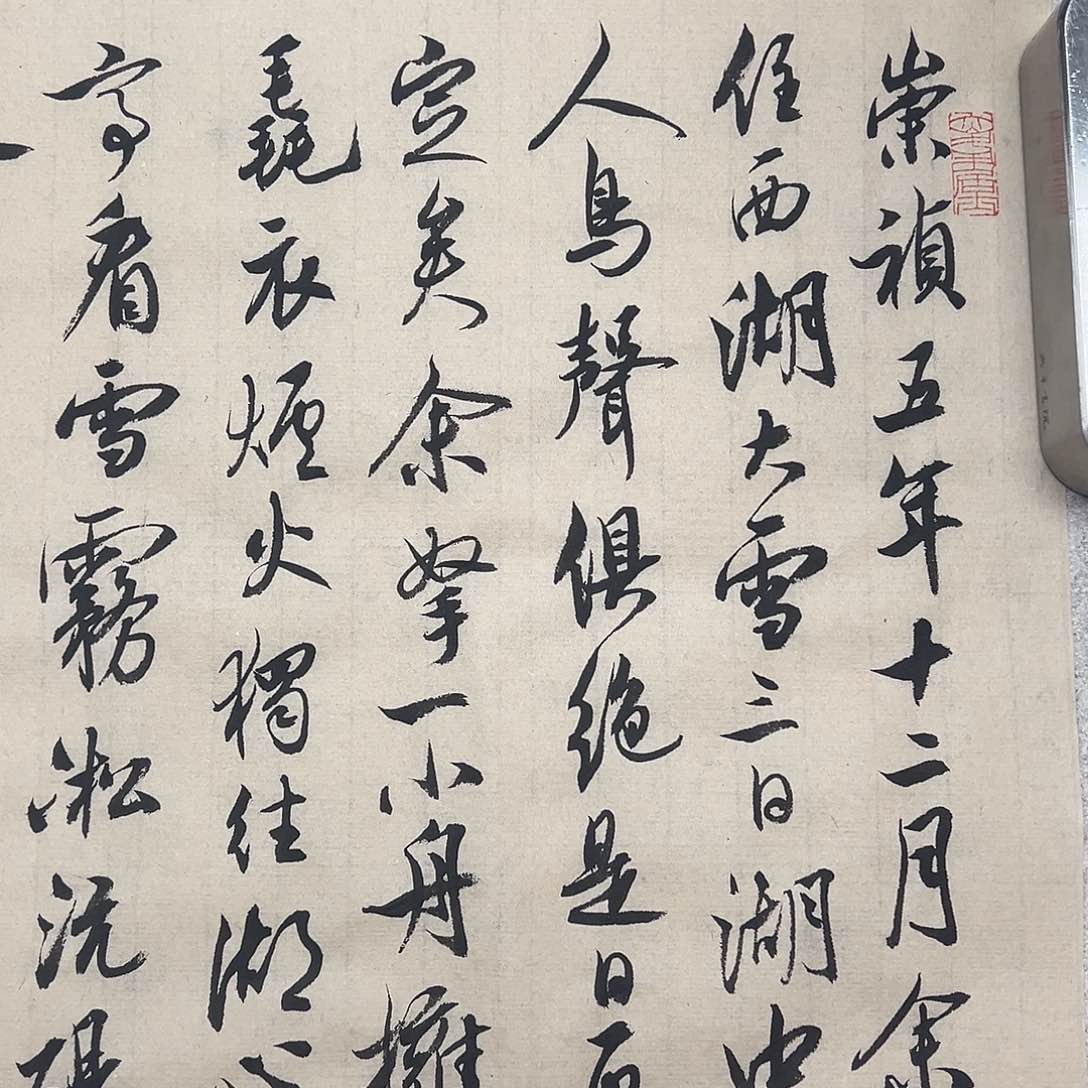 崇禎五年十二月余
住西湖大雪三日湖中
人鳥聲俱絶是日更
定矣余拏一小舟擁
毳衣爐火獨往湖心
亭看雪霧凇沆碭